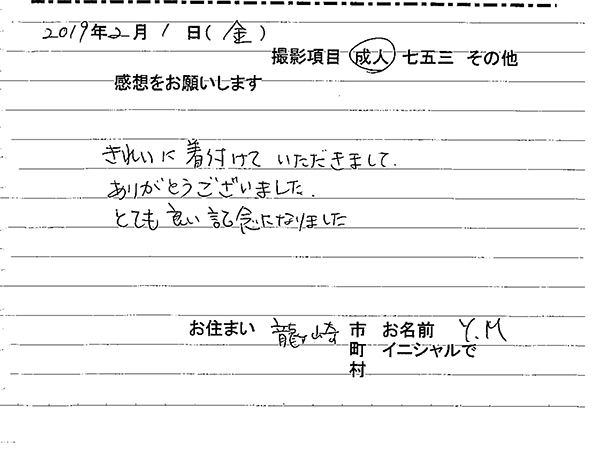 2019年2月1日(金)
撮影項目 成人 七五三 その他
感想をお願いします
きれいに着付けて いただきまして.
ありがとうございました.
とても良い記念になりました
お住まい 龍ヶ崎 市 お名前 Y.M
町 イニシャルで
村